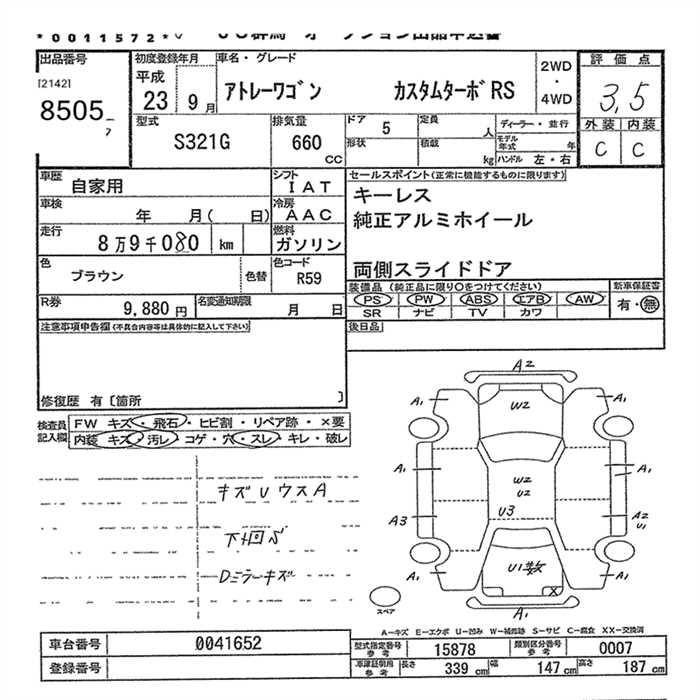 *0011572*
出品番号
[2142]
8505
7
初度登録年月
平成
23 9月
車名・グレード
アトレーワゴン カスタムターボRS
2WD
・
4WD
評価点
3.5
外装 内装
C C
型式
S321G
排気量
660
CC
ドア 5
形状
定員 人
積載 kg
ディーラー・並行
モデル年式 年
ハンドル 左・右
車歴
自家用
シフト
IAT
車検
年 月( 日)
冷房
AAC
走行
8万9千080 km
燃料
ガソリン
色
ブラウン
色替
色コード
R59
R券
9,880円
名変通知期限
月 日
セールスポイント(正常に機能するものに限ります)
キーレス
純正アルミホイール
両側スライドドア
装備品 (純正品に限り○をつけてください)
PS PW ABS エアB AW
SR ナビ TV カワ
新車保証書
有・無
後日品
注意事項申告欄(不具合内容等は具体的に記入して下さい)
修復歴 有〔箇所 〕
検査員
記入欄
FW キズ・飛石・ヒビ割・リペア跡・×要
内装 キズ・汚レ・コゲ・穴・スレ・キレ・破レ
キズUウスA
下廻サビ
Dミラーキズ
A2
A1 W2 A1
A1 W2 A1
U2
A3 U3 A2
U1
U1数
A1 X A1
A1
スペア
A-キズ E-エクボ U-凹み W-補修跡 S-サビ C-腐食 XX-交換済
車台番号 0041652
登録番号
型式指定番号
参考
15878
類別区分番号
参考
0007
車庫証明用
参考
長さ 339cm 幅 147cm 高さ 187cm